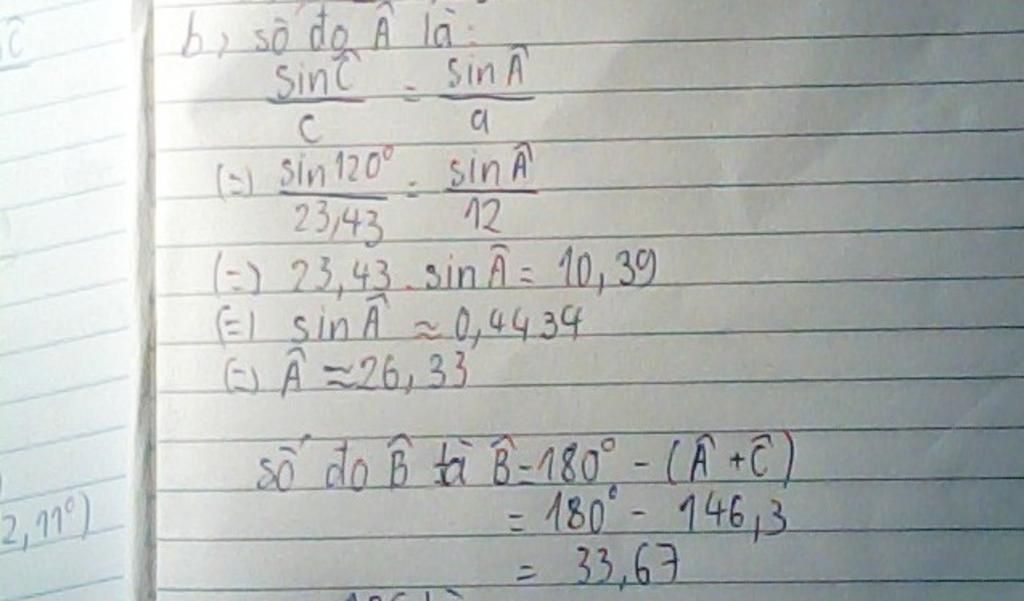 ĉ
b, số đo Â là:
sinĈ/c = sinÂ/a
(=) sin120°/23,43 = sinÂ/12
(=) 23,43 . sinÂ = 10,39
(=) sinÂ ≈ 0,4434
(=) Â ≈ 26,33
số đo B̂ là B̂ = 180° - (Â + Ĉ)
2,11°)
= 180° - 146,3
= 33,67